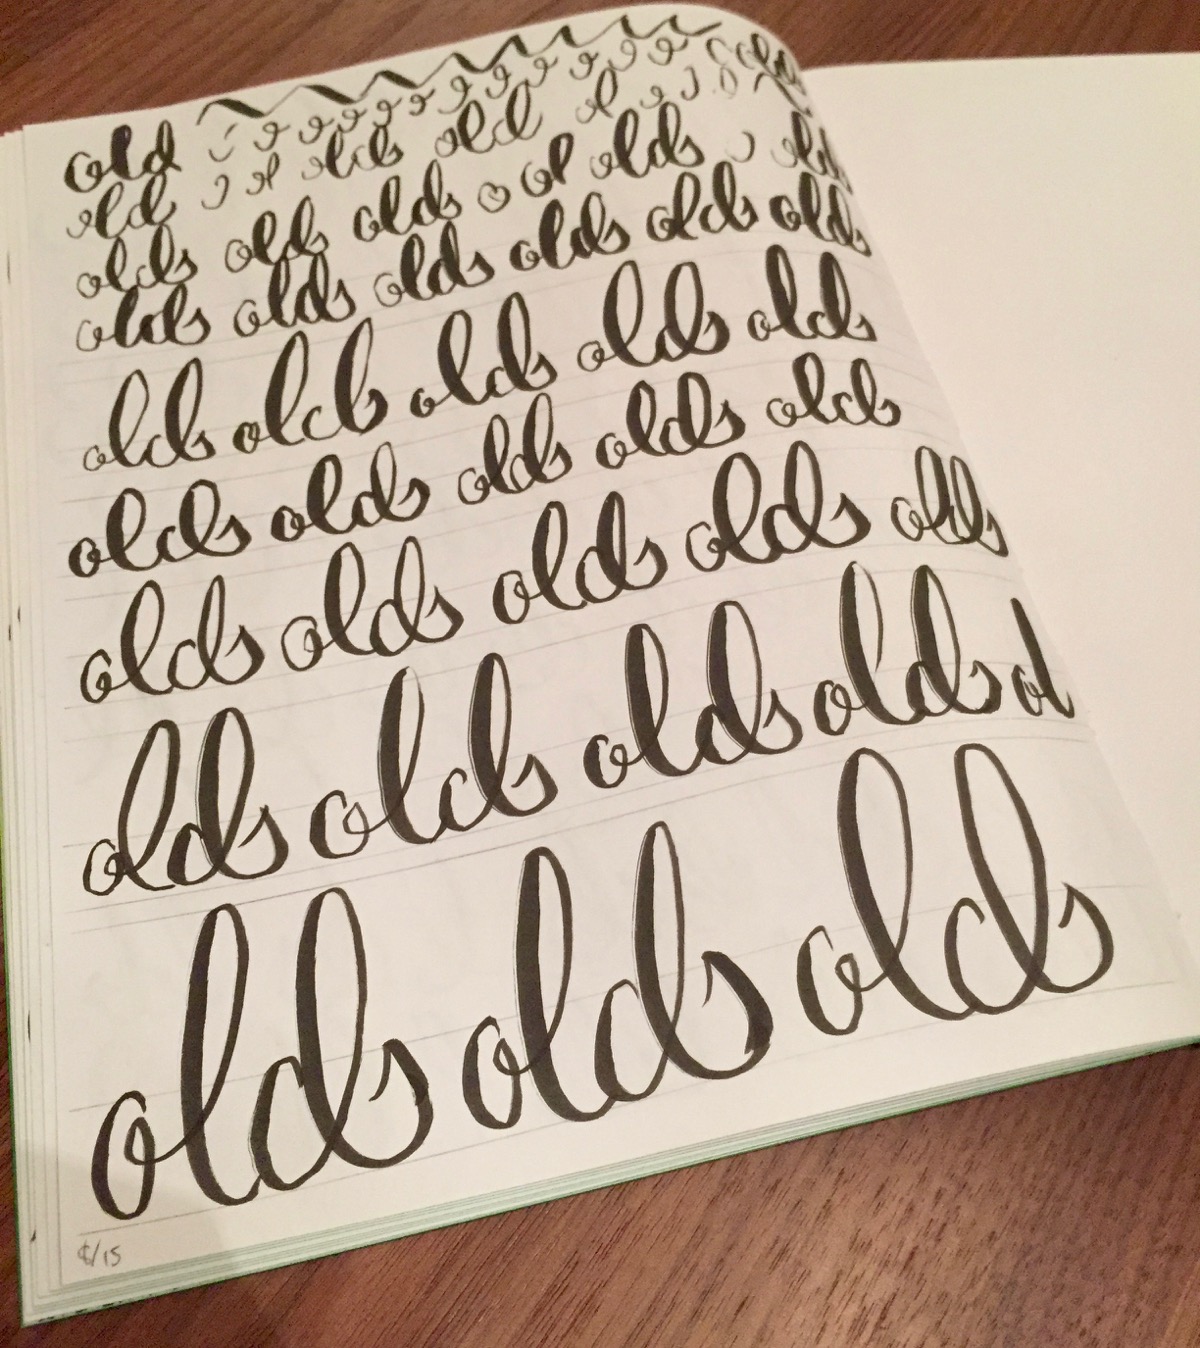 old old
old olds old ol
olds olds olds o ol olds old
olds olds olds olds olds olds
olds olds olds olds olds
olds olds olds olds olds
olds olds olds olds olds
olds olds olds olds ol
olds olds olds